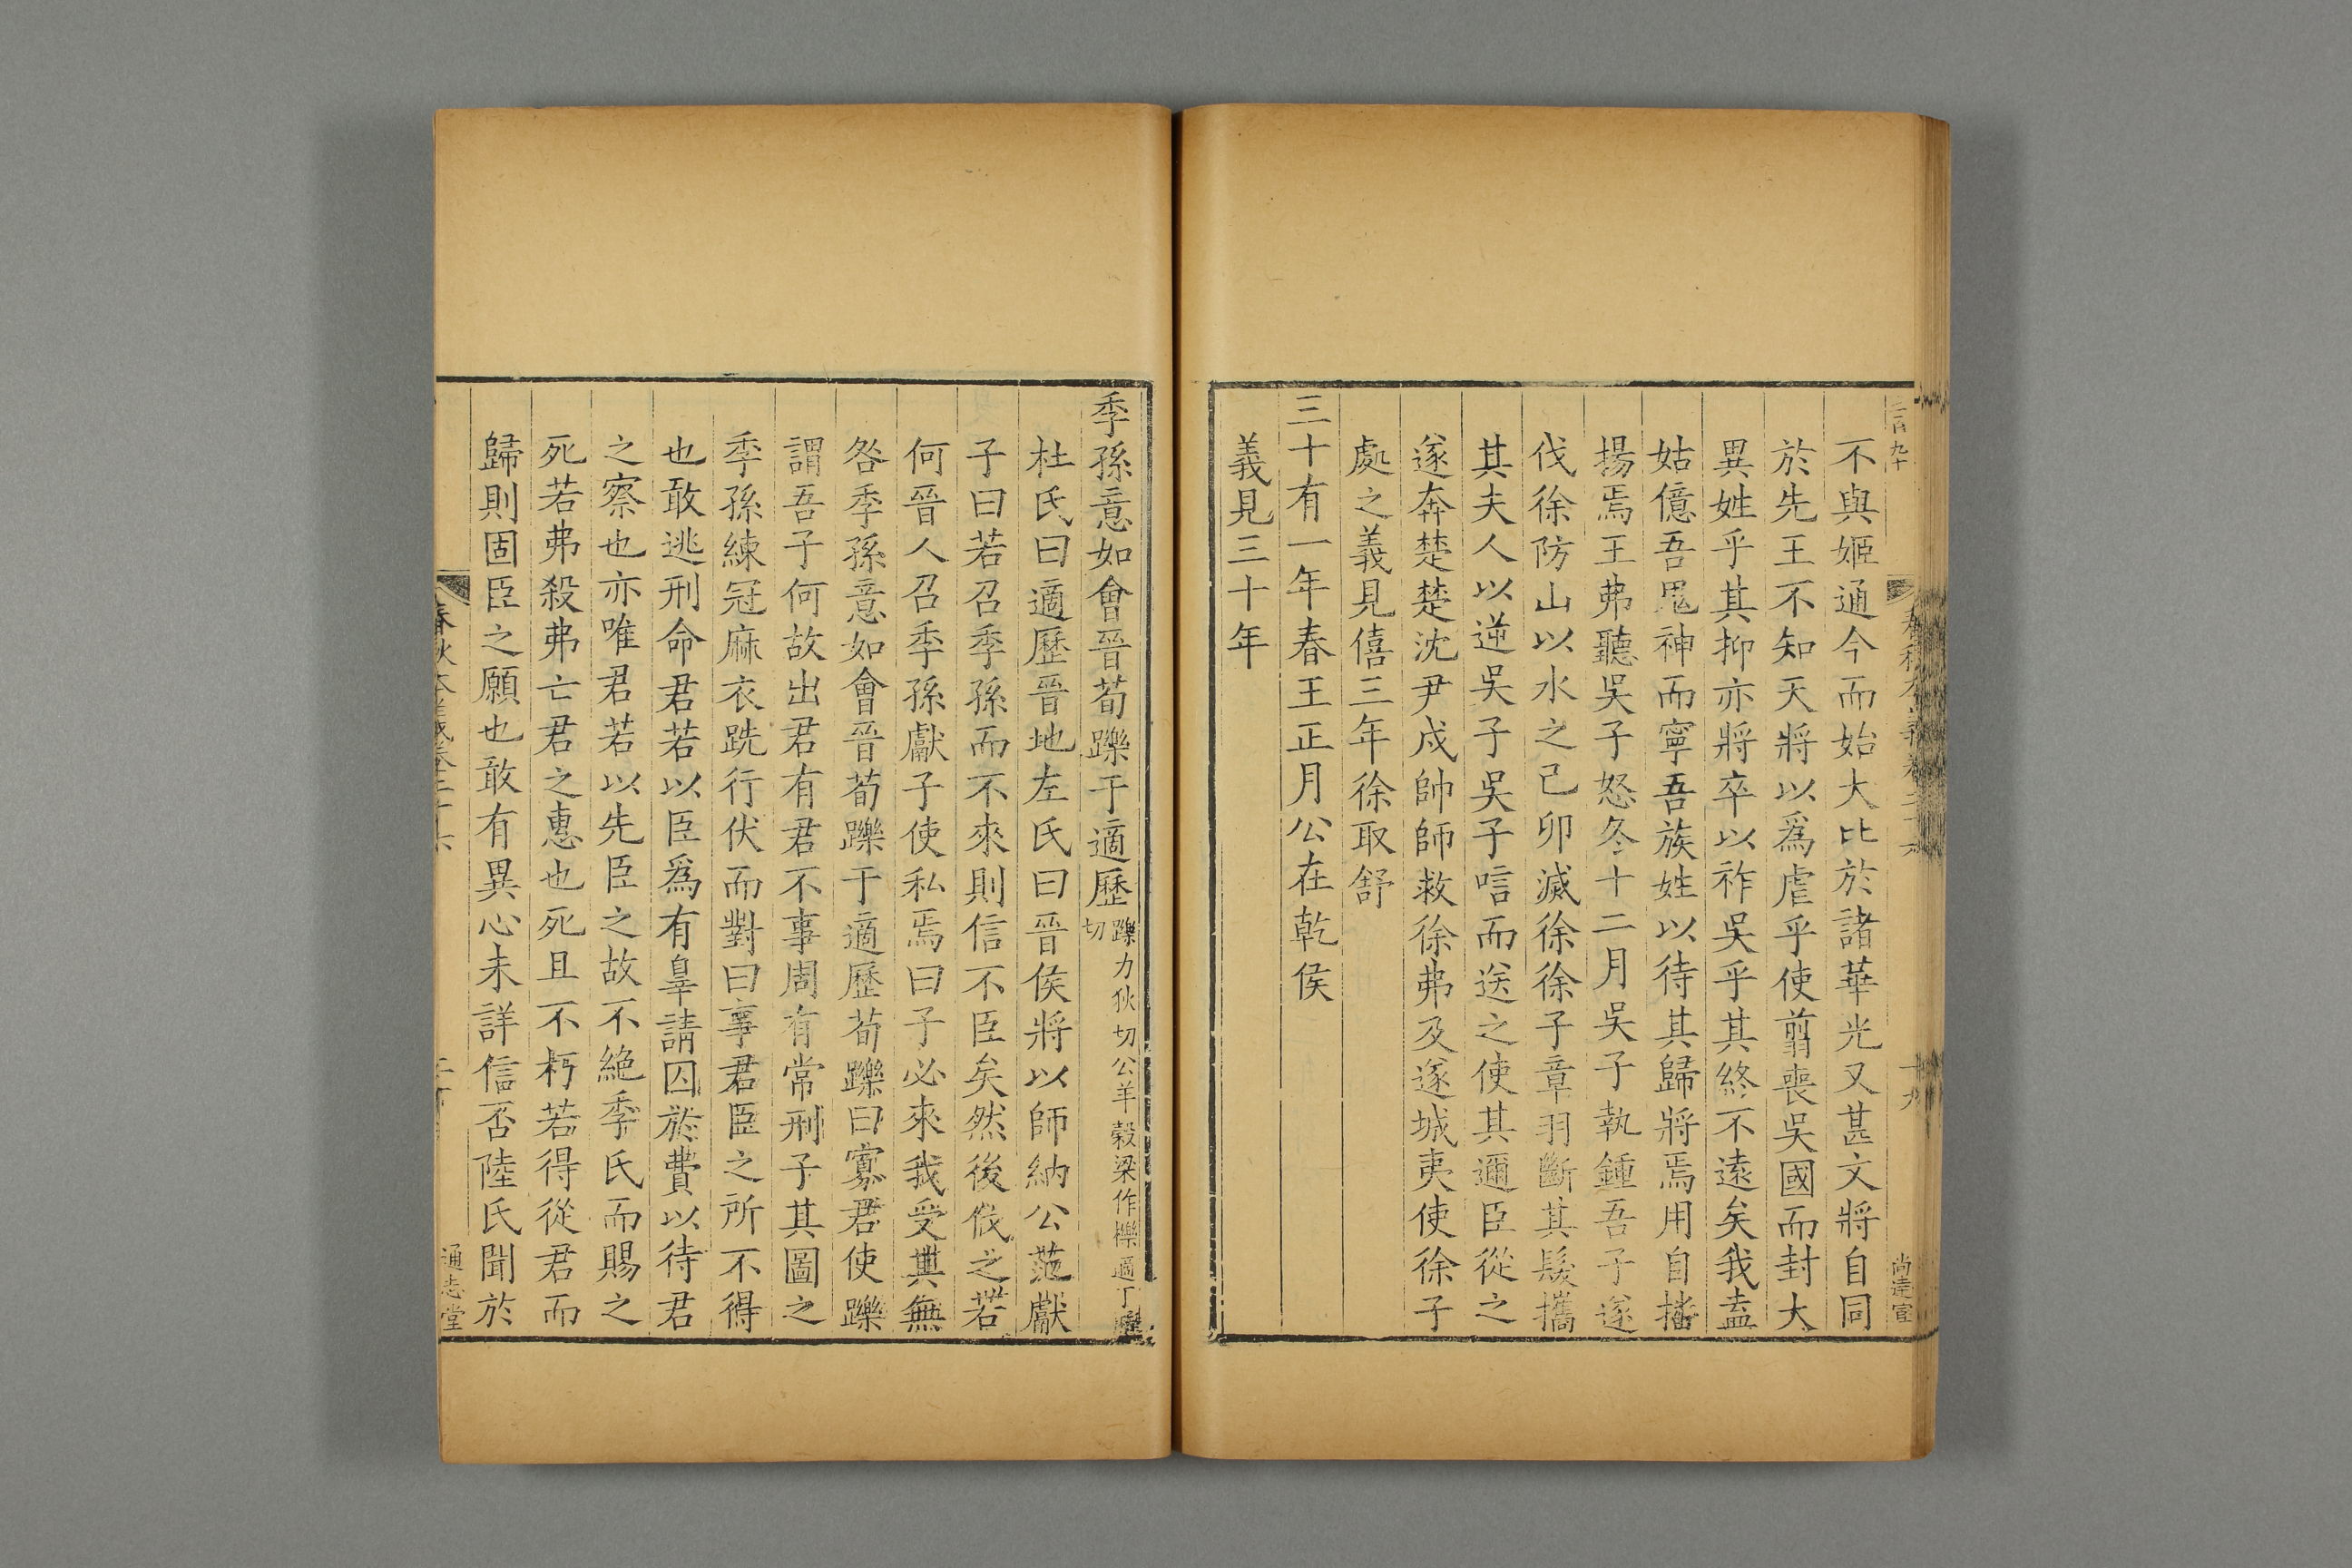 不與姬通今而始大比於諸華光又甚文將自同
於先王不知天將以爲虐乎使翦喪吳國而封大
異姓乎其抑亦將卒以祚吳乎其終不遠矣我盍
姑億吾鬼神而寧吾族姓以待其歸將焉用自播
揚焉王弗聽吳子怒冬十二月吳子執鍾吾子遂
伐徐防山以水之己卯滅徐徐子章羽斷其髮攜
其夫人以逆吳子吳子唁而送之使其邇臣從之
遂奔楚楚沈尹戌帥師救徐弗及遂城夷使徐子
處之義見僖三年徐取舒
三十有一年春王正月公在乾侯
義見三十年
季孫意如會晉荀躒于適歷躒力狄切公羊穀梁作櫟適丁歷切
杜氏曰適歷晉地左氏曰晉侯將以師納公范獻
子曰若召季孫而不來則信不臣矣然後伐之若
何晉人召季孫獻子使私焉曰子必來我受其無
咎季孫意如會晉荀躒于適歷荀躒曰寡君使躒
謂吾子何故出君有君不事周有常刑子其圖之
季孫練冠麻衣跣行伏而對曰事君臣之所不得
也敢逃刑命君若以臣爲有辠請囚於費以待君
之察也亦唯君若以先臣之故不絶季氏而賜之
死若弗殺弗亡君之惠也死且不朽若得從君而
歸則固臣之願也敢有異心未詳信否陸氏聞於
通志堂